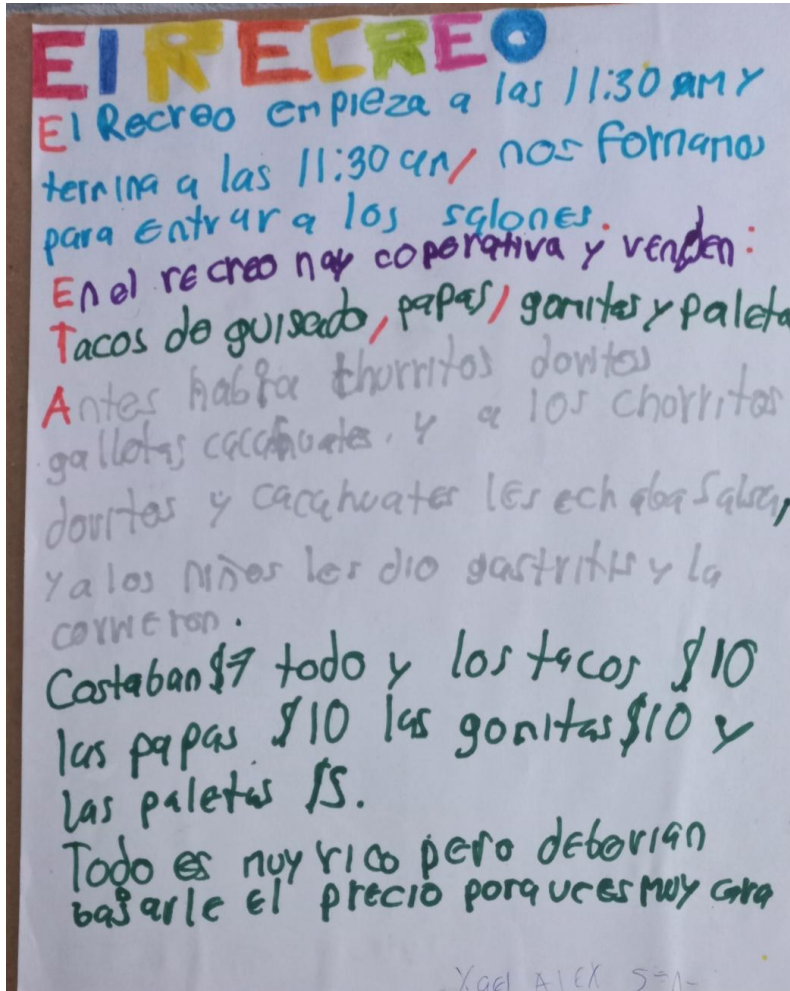 El RECREO
El Recreo empieza a las 11:30 am y
termina a las 11:30 am, nos formamos
para entrar a los salones.
En el recreo hay coperativa y venden:
Tacos de guisado, papas, gomitas y paleta
Antes había churritos doritos
galletas cacahuates, y a los chorritos
doritos y cacahuates les echaba salsa,
y a los niños les dio gastritis y la
corrieron.
Costaban $7 todo y los tacos $10
las papas $10 las gomitas $10 y
las paletas $5.
Todo es muy rico pero deberian
bajarle el precio porque es muy cara
Yael Alex